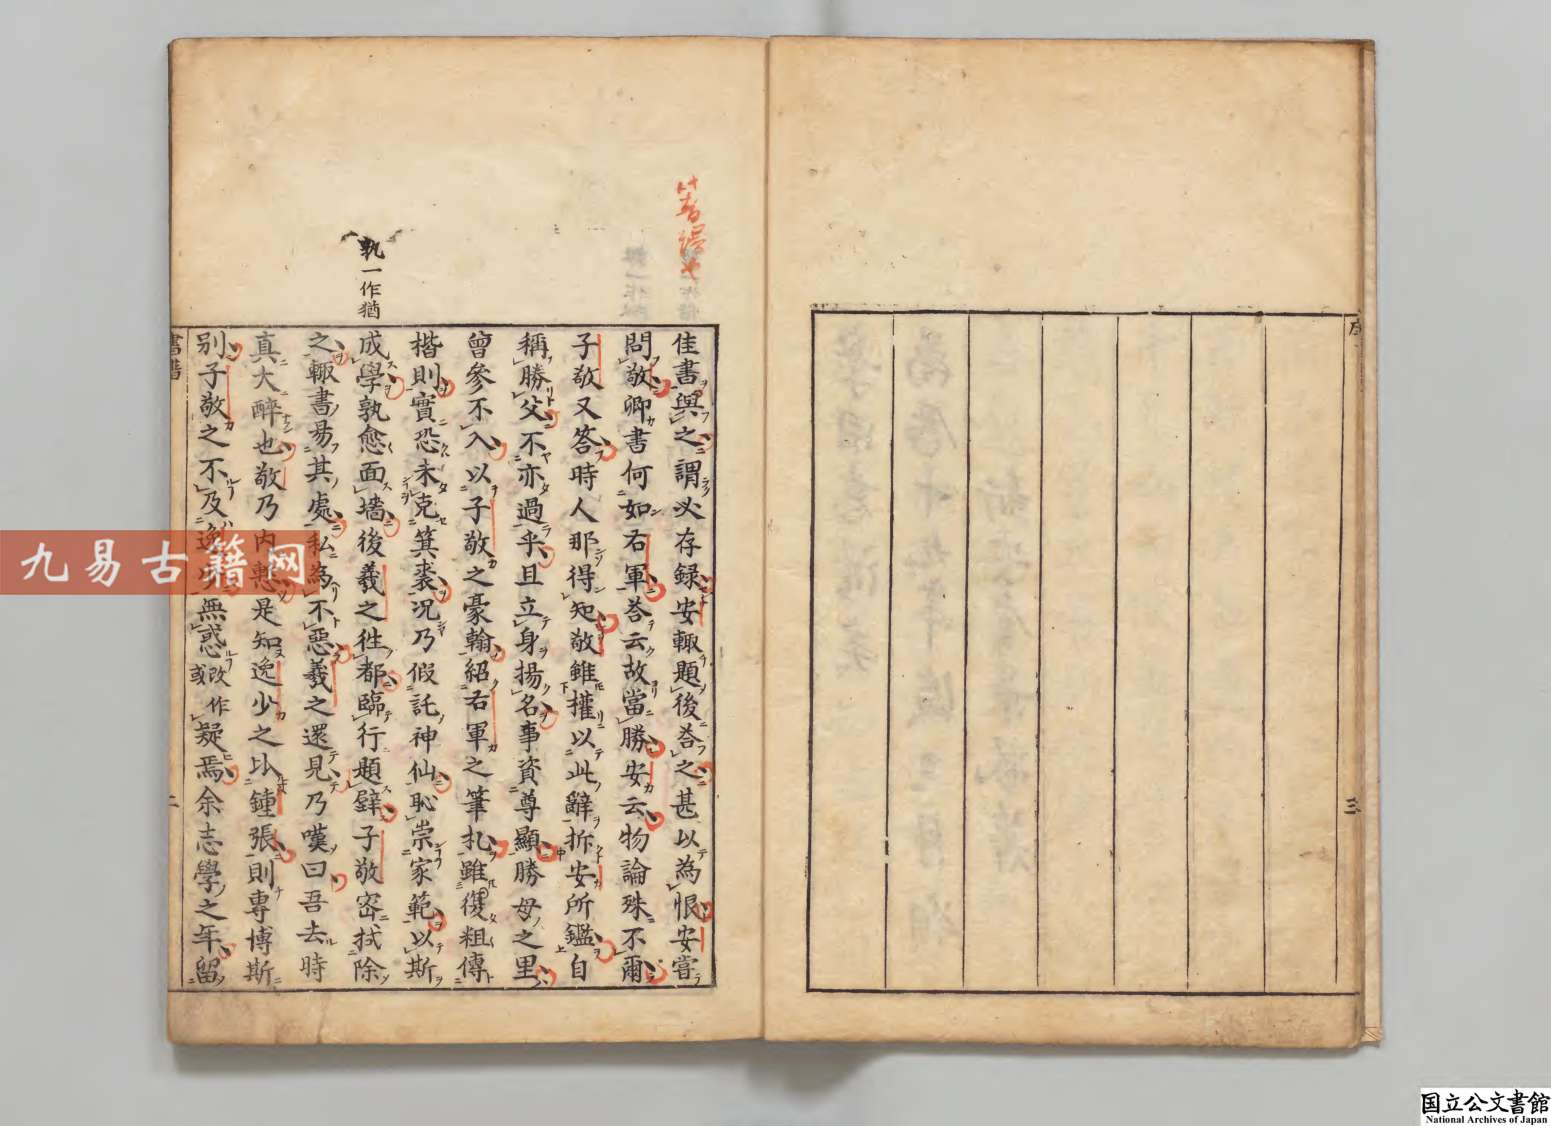 佳書與之謂必存録安輙題後荅之甚以為恨安嘗
問敬卿書何如右軍荅云故當勝安云物論殊不爾
子敬又答時人那得知敬雖權以此辭拆安所鑑自
稱勝父不亦過乎且立身揚名事資尊顯勝母之里
曾參不入以子敬之豪翰紹右軍之筆札雖復粗傳
楷則實恐未克箕裘况乃假託神仙恥崇家範以斯
成學孰愈面墻後羲之徃都臨行題壁子敬密拭除
之輙書易其處私為不惡羲之還見乃嘆曰吾去時
真大醉也敬乃内慙是知逸少之比鍾張則專博斯
別子敬之不及逸少無惑或改作疑焉余志學之年留
孰一作猶
書譜
二
序
三
九易古籍网
国立公文書館
National Archives of Japan